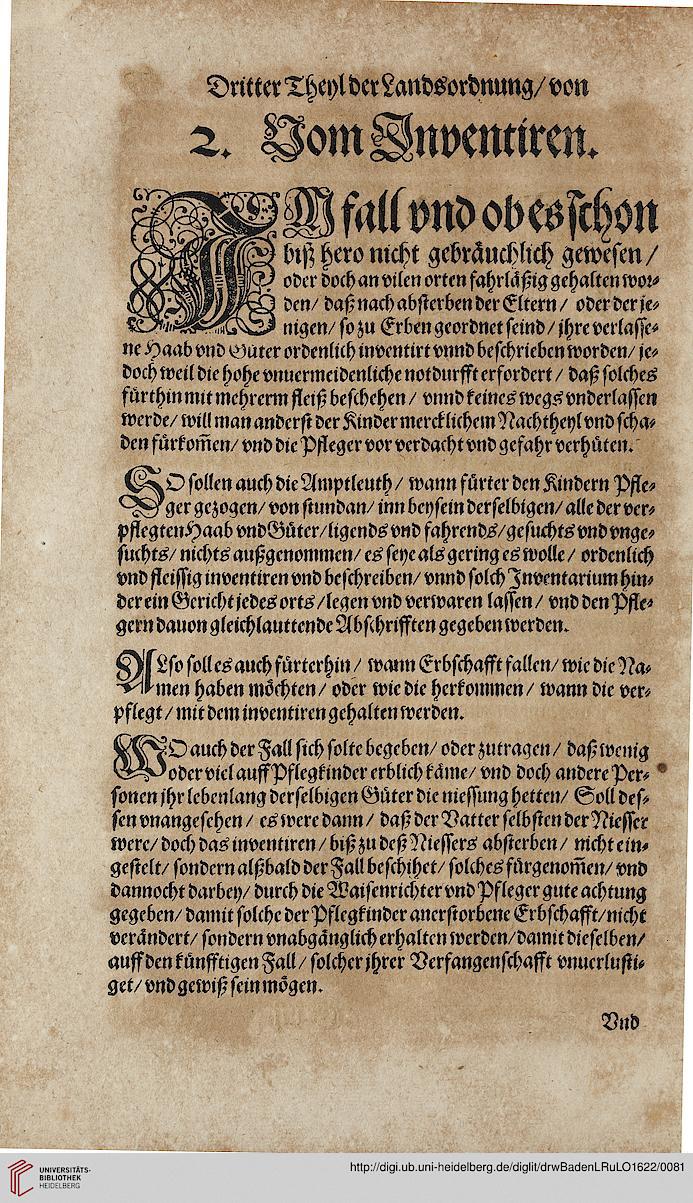 Dritter Theyl der Landsordnung/ von
2. Vom Inventiren.
IM fall vnd ob es schon
biß hero nicht gebräuchlich gewesen /
oder doch an vilen orten fahrläßig gehalten wor-
den/ daß nach absterben der Eltern / oder der je-
nigen/ so zu Erben geordnet seind / jhre verlasse-
ne Haab vnd Güter ordenlich inventirt vnnd beschrieben worden/ je-
doch weil die hohe vnuermeidenliche notdurfft erfordert / daß solches
fürthin mit mehrerm fleiß beschehen / vnnd keines wegs vnderlassen
werde/ will man anderst der Kinder mercklichem Nachtheyl vnd scha-
den fürkom̃en/ vnd die Pfleger vor verdacht vnd gefahr verhüten.
SO sollen auch die Amptleuth / wann fürter den Kindern Pfle-
ger gezogen/ von stundan/ inn beysein derselbigen/ alle der ver-
pflegten Haab vnd Güter/ligends vnd fahrends/gesuchts vnd vnge-
suchts/ nichts außgenommen/ es seye als gering es wolle / ordenlich
vnd fleissig inventiren vnd beschreiben/ vnnd solch Inventarium hin-
der ein Gericht jedes orts /legen vnd verwaren lassen / vnd den Pfle-
gern dauon gleichlauttende Abschrifften gegeben werden.
ALso soll es auch fürterhin / wann Erbschafft fallen/ wie die Na-
men haben möchten / oder wie die herkommen / wann die ver-
pflegt / mit dem inventiren gehalten werden.
WO auch der Fall sich solte begeben/ oder zutragen / daß wenig
oder viel auff Pflegkinder erblich käme/ vnd doch andere Per-
sonen jhr lebenlang derselbigen Güter die niessung hetten/ Soll des-
sen vnangesehen / es were dann / daß der Vatter selbsten der Niesser
were/ doch das inventiren / biß zu deß Niessers absterben / nicht ein-
gestelt/ sondern alßbald der Fall beschihet/ solches fürgenom̃en/ vnd
dannocht darbey/ durch die Waisenrichter vnd Pfleger gute achtung
gegeben/ damit solche der Pflegkinder anerstorbene Erbschafft/nicht
verändert/ sondern vnabgänglich erhalten werden/damit dieselben/
auff den künfftigen Fall / solcher jhrer Verfangenschafft vnuerlusti-
get/ vnd gewiß sein mögen.
Vnd
UNIVERSITÄTS-
BIBLIOTHEK
HEIDELBERG
http://digi.ub.uni-heidelberg.de/diglit/drwBadenLRuLO1622/0081